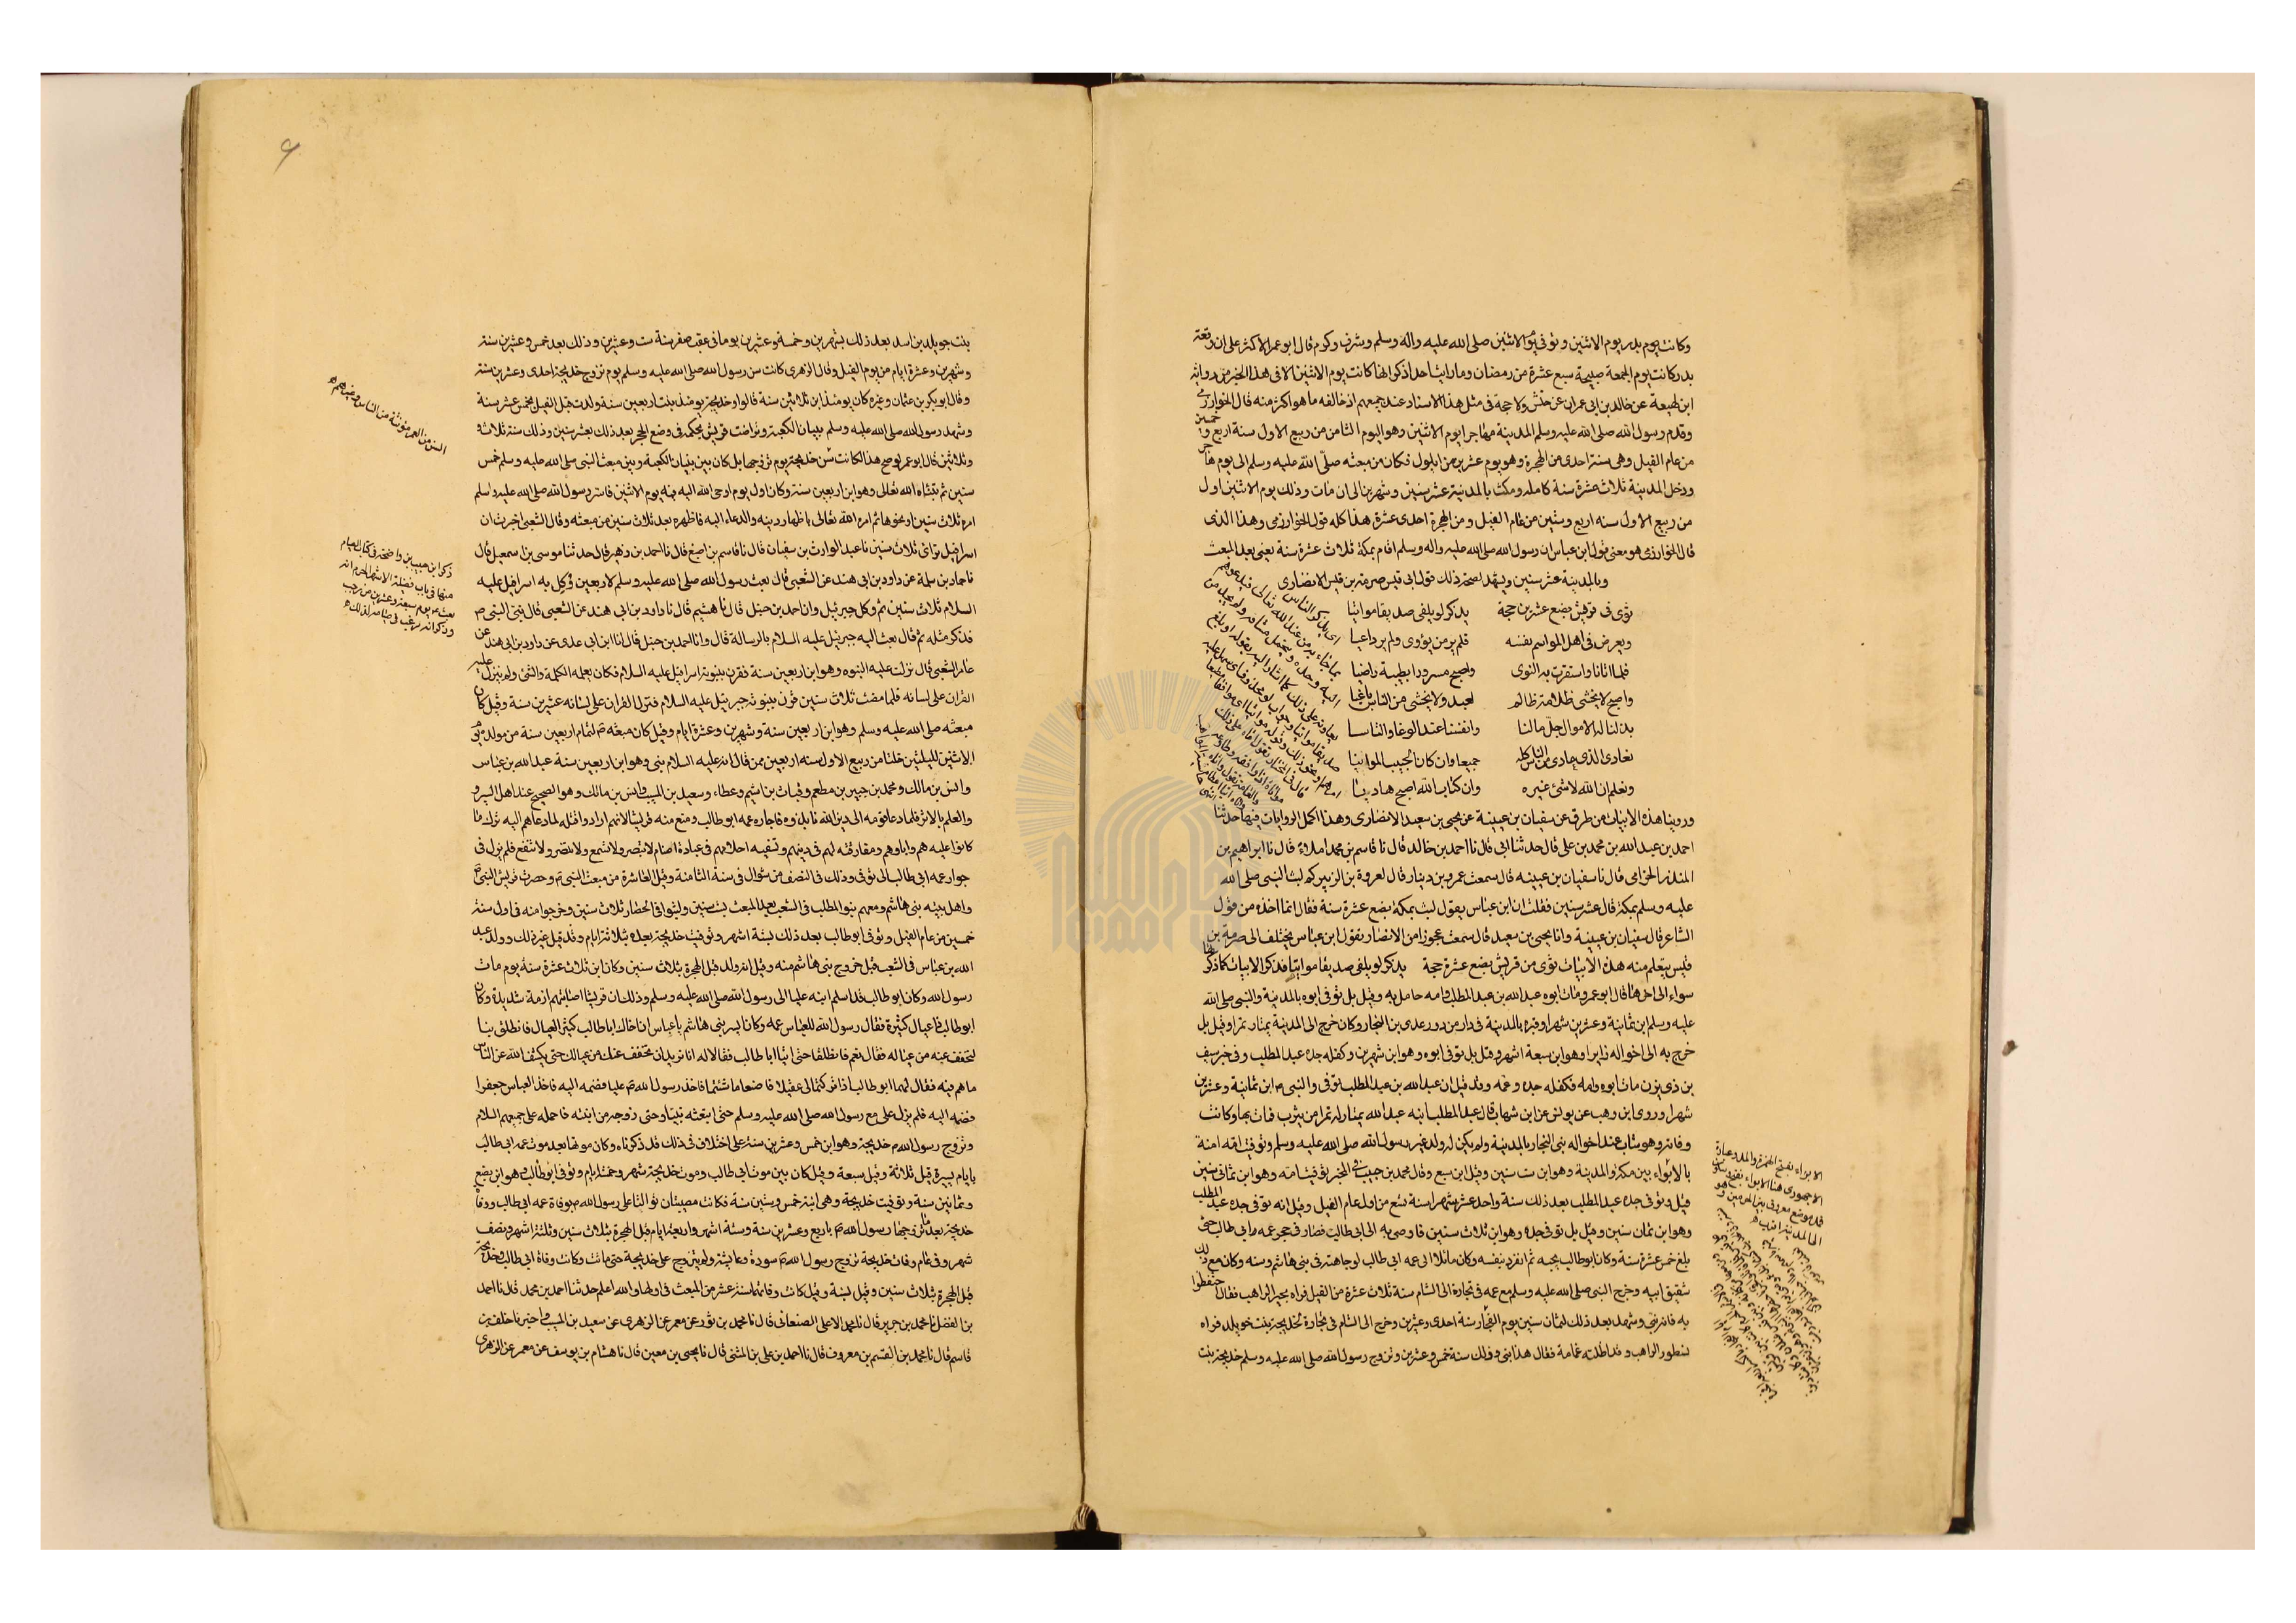 وكانت يوم بدر يوم الاثنين وتوفى يوم الاثنين صلى الله عليه واله وسلم وشرف وكرم قال ابو عمر الاكثر على ان وقعة
بدر كانت يوم الجمعة صبيحة سبع عشرة من رمضان وما رايت احدا ذكر انها كانت يوم الاثنين الا فى هذا الخبر من رواية
ابن لهيعة عن خالد بن ابى عمران عن حنش ولا حجة فى مثل هذا الاسناد عند جميعهم اذ خالفه ما هو اكثر منه قال الخوارزمى
وقدم رسول الله صلى الله عليه وسلم المدينة مهاجرا يوم الاثنين وهو اليوم الثامن من ربيع الاول سنة اربع وخمسين
من عام الفيل وهى سنة احدى من الهجرة وهو يوم عشرين من ايلول فكان من مبعثه صلى الله عليه وسلم الى يوم هاجر
ودخل المدينة ثلاث عشرة سنة كاملة ومكث بالمدينة عشر سنين وشهرين الى ان مات وذلك يوم الاثنين اول
من ربيع الاول سنه اربع وستين من عام الفيل ومن الهجرة احدى عشرة هذا كله قول الخوارزمى وهذا الذى
قال الخوارزمى هو معنى قول ابن عباس ان رسول الله صلى الله عليه واله وسلم اقام بمكة ثلاث عشرة سنة يعنى بعد المبعث
وبالمدينة عشر سنين ويشهد لصحة ذلك قول ابى قيس صرمة بن قيس الانصارى
ثوى فى قريش بضع عشرين حجة يذكر لو يلقى صديقا مواتيا
ويعرض فى اهل المواسم نفسه فلم ير من يؤوى ولم ير داعيا
فلما اتانا واستقرت به النوى واصبح مسرورا بطيبة راضيا
واصبح لا يخشى ظلامة ظالم بعيد ولا يخشى من الناس باغيا
بذلنا له الاموال جل مالنا وانفسنا عند الوغا والتاسيا
نعادى الذى عادى من الناس كلهم جميعا وان كان الحبيب المواتيا
ونعلم ان الله لا شئ غيره وان كتاب الله اصبح هاديا
وروينا هذه الابيات من طرق عن سفيان بن عيينة عن يحيى بن سعيد الانصارى وهذا اكمل الروايات فيها حدثنا
احمد بن عبد الله بن محمد بن على قال حدثنا ابى قال نا احمد بن خالد قال نا قاسم بن محمد املاء قال نا ابراهيم بن
المنذر الحزامى قال نا سفيان بن عيينه قال سمعت عمرو بن دينار قال لعروة بن الزبير كم لبث النبى صلى الله
عليه وسلم بمكة قال عشر سنين فقلت ان ابن عباس يقول لبث بمكة بضع عشرة سنة فقال انما اخذه من قول
الشاعر قال سفيان بن عيينة وانا يحيى بن سعيد قال سمعت عجوزا من الانصار يقول ابن عباس يختلف الى صرمة بن
قيس يتعلم منه هذه الابيات ثوى من قريش بضع عشرة حجة يذكر لو يلقى صديقا مواتيا فذكر الابيات كما ذكرها
سواء الى اخرها قال ابو عمر ومات ابوه عبد الله بن عبد المطلب وامه حامل به وقيل بل توفى ابوه بالمدينة والنبى صلى الله
عليه وسلم بن ثمانية وعشرين شهرا وقبره بالمدينة فى دار من دور عدى بن النجار وكان خرج الى المدينة يمتار تمرا وقيل بل
خرج به الى اخواله زايرا وهو ابن سبعة اشهر وقيل بل توفى ابوه وهو ابن شهرين وكفله جده عبد المطلب وفى خبر سيف
بن ذى يزن مات ابوه وامه فكفله جده وعمه وقد قيل ان عبد الله بن عبد المطلب توفى والنبى ص ابن ثمانية وعشرين
شهرا وروى ابن وهب عن يونس عن ابن شهاب قال بعث عبد المطلب ابنه عبد الله يمتار له تمرا من يثرب فمات بها وكانت
وفاته وهو شاب عند اخواله بنى النجار بالمدينة ولم يكن له ولد غير رسول الله صلى الله عليه وسلم وتوفيت امه امنة
بالابواء بين مكة والمدينة وهو ابن ست سنين وقيل ابن سبع وقال محمد بن حبيب فى المحبر توفيت امه وهو ابن ثمانى سنين
قيل وتوفى جده عبد المطلب بعد ذلك سنة واحد عشر شهرا سنة تسع من اول عام الفيل وقيل انه توفى جده عبد المطلب
وهو ابن ثمان سنين وقيل بل توفى جده وهو ابن ثلاث سنين فاوصى به الى ابى طالب فصار فى حجر عمه ابى طالب حتى
بلغ خمس عشرة سنة وكان ابو طالب يحبه ثم انفرد بنفسه وكان مائلا الى عمه ابى طالب لوجاهته فى بنى هاشم وسنه وكان مع ذلك
شقيق ابيه وخرج النبى صلى الله عليه وسلم مع عمه فى تجارة الى الشام سنة ثلاث عشرة من الفيل فراه بحيرا الراهب فقال احتفظوا
به فانه نبى وشهد بعد ذلك بثمان سنين يوم الفجار سنة احدى وعشرين وخرج الى الشام فى تجارة لخديجة بنت خويلد فراه
نسطور الراهب وقد اظلته غمامة فقال هذا نبى وذلك سنة خمس وعشرين وتزوج رسول الله صلى الله عليه وسلم خديجة بنت
الابواء بفتح الهمزة والمد وعبارة
۶
بنت خويلد بن اسد بعد ذلك بشهرين وخمسة وعشرين يوما فى عقب صفر سنة ست وعشرين وذلك بعد خمس وعشرين سنة
وشهرين وعشرة ايام من يوم الفيل وقال الزهرى كانت سن رسول الله صلى الله عليه وسلم يوم تزوج خديجة احدى وعشرين سنة
وقال ابو بكر بن عثمان وغيره كان يومئذ ابن ثلاثين سنة قالوا وخديجة يومئذ بنت اربعين سنة ولدت قبل الفيل بخمس عشرة سنة
وشهد رسول الله صلى الله عليه وسلم بنيان الكعبة وتراضت قريش بحكمه فى وضع الحجر بعد ذلك بعشر سنين وذلك سنة ثلاث و
وثلاثين قال ابو عمر لو صح هذا لكانت سن خديجة يوم تزوجها بل كان بين بنيان الكعبة وبين مبعث النبى صلى الله عليه وسلم خمس
سنين ثم نبئاه الله تعالى وهو ابن اربعين سنة وكان اول يوم اوحى الله اليه فيه يوم الاثنين فاسر رسول الله صلى الله عليه وسلم
امره ثلاث سنين او نحوها ثم امره الله تعالى باظهار دينه والدعاء اليه فاظهره بعد ثلاث سنين من مبعثه وقال الشعبى اخبرت ان
اسرافيل تراءى ثلاث سنين نا عبد الوارث بن سفيان قال نا قاسم بن اصبغ قال نا احمد بن زهير قال حدثنا موسى بن اسمعيل قال
نا حماد بن سلمة عن داود بن ابى هند عن الشعبى قال بعث رسول الله صلى الله عليه وسلم لاربعين ووكل به اسرافيل عليه
السلام ثلاث سنين ثم وكل جبرئيل وانا احمد بن حنبل قال نا هشيم قال نا داود بن ابى هند عن الشعبى قال نبئ النبى ص
فذكر مثله ثم قال بعث اليه جبرئيل عليه السلام بالرسالة قال وانا احمد بن حنبل قال انا ابن ابى عدى عن داود بن ابى هند عن
عامر الشعبى قال نزلت عليه النبوه وهو ابن اربعين سنة فقرن بنبوته اسرافيل عليه السلام فكان يعلمه الكلمة والشئ ولم ينزل عليه
القران على لسانه فلما مضت ثلاث سنين قرن بنبوته جبرئيل عليه السلام فنزل القران على لسانه عشرين سنة وقيل كان
مبعثه صلى الله عليه وسلم وهو ابن اربعين سنة وشهرين وعشرة ايام وقيل كان مبعثه ص لتمام اربعين سنة من مولده يوم
الاثنين لليلتين خلتا من ربيع الاول سنه اربعين ممن قال انه عليه السلام نبئ وهو ابن اربعين سنة عبد الله بن عباس
وانس بن مالك ومحمد بن جبير بن مطعم وقباث بن اشيم وعطاء وسعيد بن المسيب وانس بن مالك وهو الصحيح عند اهل السير و
والعلم بالاثر فلما دعا قومه الى دين الله نابذوه فاجاره عمه ابو طالب ومنع منه قريشا لانهم ارادوا قتله لما دعاهم اليه ترك ما
كانوا عليه هم واباوهم ومفارقته لهم فى دينهم وتسفيه احلامهم فى عبادة اصنام لا تبصر ولا تسمع ولا تضر ولا تنفع فلم يزل فى
جوار عمه ابى طالب الى توفى وذلك فى النصف من شوال فى سنة الثامنة وقيل العاشرة من مبعث النبى ص وحصرت قريش النبى ص
واهل بيته بنى هاشم ومعهم بنو المطلب فى الشعب بعد المبعث بست سنين ولبثوا فى الحصار ثلاث سنين وخرجوا منه فى اول سنة
خمسين من عام الفيل وتوفى ابو طالب بعد ذلك بستة اشهر وتوفيت خديجة بعده بثلاثة ايام وقد قيل غير ذلك وولد عبد
الله بن عباس فى الشعب قبل خروج بنى هاشم منه وقيل انه ولد قبل الهجرة بثلاث سنين وكان ابن ثلاث عشرة سنة يوم مات
رسول الله وكان ابو طالب قد اسلم ابنه عليا الى رسول الله صلى الله عليه وسلم وذلك ان قريشا اصابتهم ازمة شديدة وكان
ابو طالب ذا عيال كثيرة فقال رسول الله للعباس عمه وكان ايسر بنى هاشم يا عباس ان اخاك ابا طالب كثير العيال فانطلق بنا
لنخفف عنه من عياله فقال نعم فانطلقا حتى اتيا ابا طالب فقالا له انا نريد ان نخفف عنك من عيالك حتى يكشف الله عن الناس
ما هم فيه فقال لهما ابو طالب اذا تركتما لى عقيلا فاصنعا ما شئتما فاخذ رسول الله ص عليا فضمه اليه فاخذ العباس جعفرا
فضمه اليه فلم يزل على مع رسول الله صلى الله عليه وسلم حتى ابتعثه نبيا وحتى زوجه من ابنته فاحمله على جميعهم السلام
وتزوج رسول الله ص خديجة وهو ابن خمس وعشرين سنة على اختلاف فى ذلك قد ذكرناه وكان موتها بعد موت عمه ابى طالب
بايام يسيرة قيل ثلاثة وقيل سبعة وقيل كان بين موت ابى طالب وموت خديجة شهر وخمسة ايام وتوفى ابو طالب وهو ابن بضع
وثمانين سنة وتوفيت خديجة وهى ابنة خمس وستين سنة فكانت مصيبتان توالتا على رسول الله ص بوفاة عمه ابى طالب ووفاة
خديجة بعد تزوجها رسول الله ص باربع وعشرين سنة وستة اشهر واربعة ايام قبل الهجرة بثلاث سنين وثلثة اشهر ونصف
شهر وفى عام وفات خديجة تزوج رسول الله ص سودة وعايشة ولم يتزوج على خديجة حتى ماتت وكانت وفاة ابى طالب وخديجة
قبل الهجرة بثلاث سنين وقيل لسنة وقيل كانت وفاتهما سنة عشر من المبعث فى اولها والله اعلم حدثنا احمد بن محمد قال نا احمد
بن الفضل نا محمد بن جرير قال نا محمد الاعلى الصنعانى قال نا محمد بن ثور عن معمر عن الزهرى عن سعيد بن المسيب واخبرنا خلف بن
قاسم قال نا محمد بن القسم بن معروف قال نا احمد بن على بن المثنى قال نا يحيى بن معين قال نا هشام بن يوسف عن معمر عن الزهرى
السن من العمر مونثة من الناس وغيرهم
ذكر ابن حبيب بن واضحة فى كتاب الصيام
منها فى باب فضيلة الاشهر الحرم انه
بعث ص يوم سبعة وعشرين من رجب